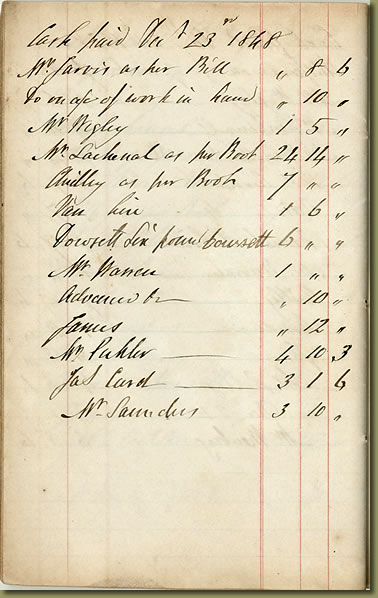 Cash paid Decr 23rd 1848
Mr Jarvis as per Bill " 8 6
To on ac of work in hand " 10 "
Mr Wigley 1 5 "
Mr Lachenal as per Book 24 14 "
Chidley as per Book 7 " "
Van hire 1 6 "
Dowsett Six pound dowsett 6 " "
Mr Warren 1 " "
Advance 10 "
James " 12 "
Mr 4 10 3
Jas Card 3 1 6
Mr Saunders 3 10 "